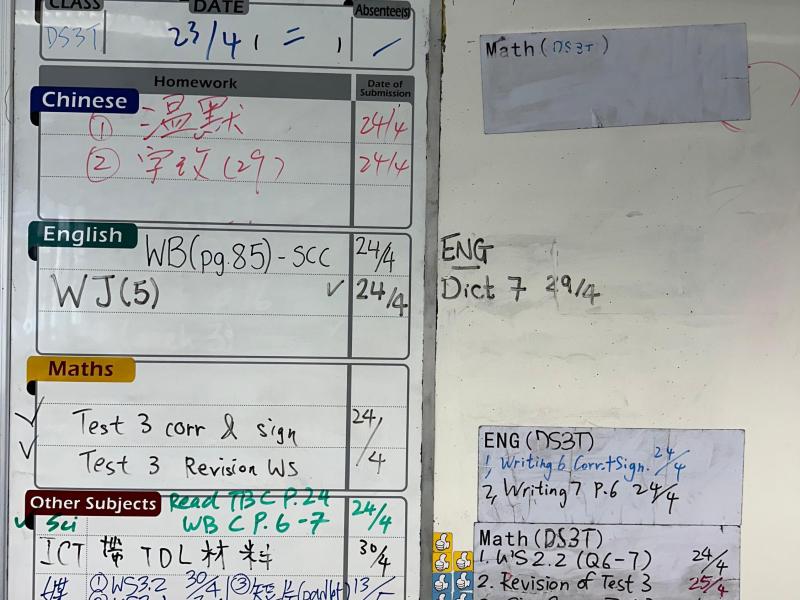 CLASS DATE Absentee(s)
DS3T 23/4
Homework Date of Submission
Chinese
① 温默 24/4
② 字玟(29) 24/4
English
WB(pg.85)-SCC 24/4
WJ(5) ✓ 24/4
Maths
✓ Test 3 corr & sign 24/4
✓ Test 3 Revision WS
Other Subjects Read TBC P.24 24/4
✓ Sci WB C P.6-7
ICT 帶 TDL 材料 30/4
①WS3.2 30/4 ③ 13/5
Math(DS3T)
ENG
Dict 7 29/4
ENG(DS3T)
1, Writing 6 Corr.+Sign. 24/4
2, Writing 7 P.6 24/4
Math(DS3T)
1. WS 2.2 (Q6-7) 24/4
2. Revision of Test 3 25/4